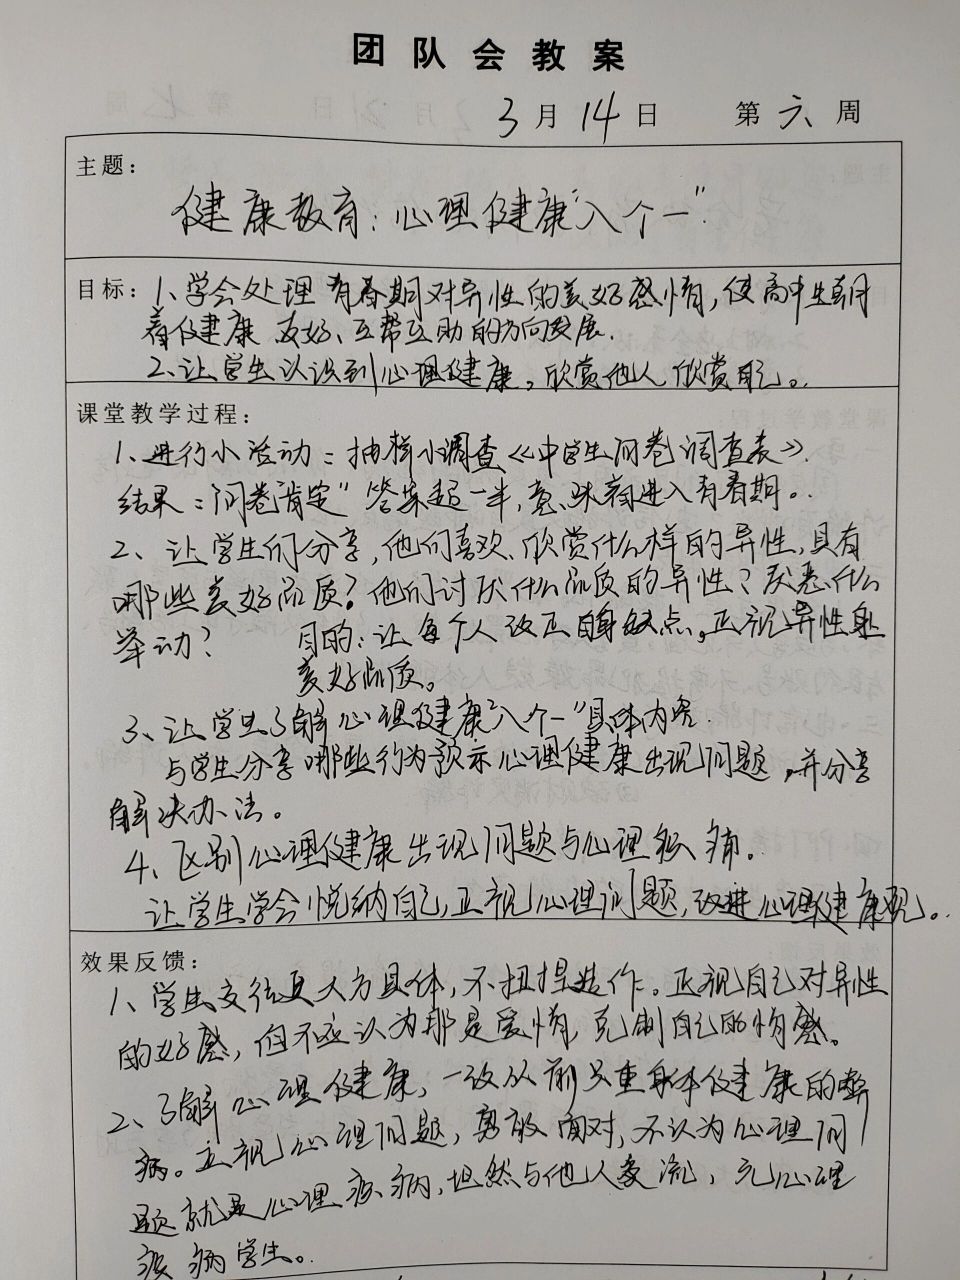 团队会教案
3月14日 第六周
主题：
健康教育：心理健康"八个一"
目标：1、学会处理青春期对异性的美好感情，使高中生朝
着健康、友好、互帮互助的方向发展.
2、让学生认识到心理健康，欣赏他人欣赏自己。
课堂教学过程：
1、进行小活动：抽样小调查《中学生问卷调查表》.
结果：问卷"肯定"答案超一半，意味着进入青春期。
2、让学生们分享，他们喜欢、欣赏什么样的异性，具有
哪些美好品质？他们讨厌什么品质的异性？厌恶什么
举动？ 目的：让每个人改正自身缺点，正视异性身
美好品质。
3、让学生了解心理健康"八个一"具体内容.
与学生分享哪些行为预示心理健康出现问题，并分享
解决办法。
4、区别心理健康出现问题与心理疾病。
让学生学会悦纳自己，正视心理问题，改进心理健康观。
效果反馈：
1、学生交往更大方具体，不扭捏造作。正视自己对异性
的好感，但不应认为那是爱情，克制自己的情感。
2、了解心理健康，一改从前只重身体健康的弊
病。正视心理问题，勇敢面对，不认为心理问
题就是心理疾病，坦然与他人交流，无心理
疾病学生。